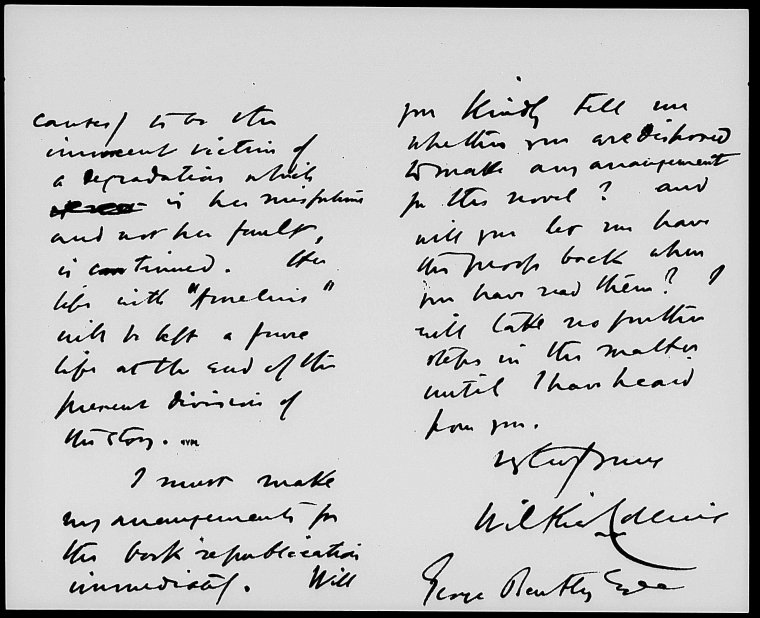 causes) to be the
innocent victim of
a degradation which
is her misfortune
and not her fault,
is continued. Her
life with "Amelius"
will be left a pure
life at the end of the
present division of
the story.
I must make
my arrangements for
the book republication
immediately. Will
you kindly tell me
whether you are disposed
to make any arrangement
for this novel? and
will you let me have
the proofs back when
you have read them? I
will take no further
steps in the matter
until I have heard
from you.
Very truly yours
Wilkie Collins
George Bentley Esqre